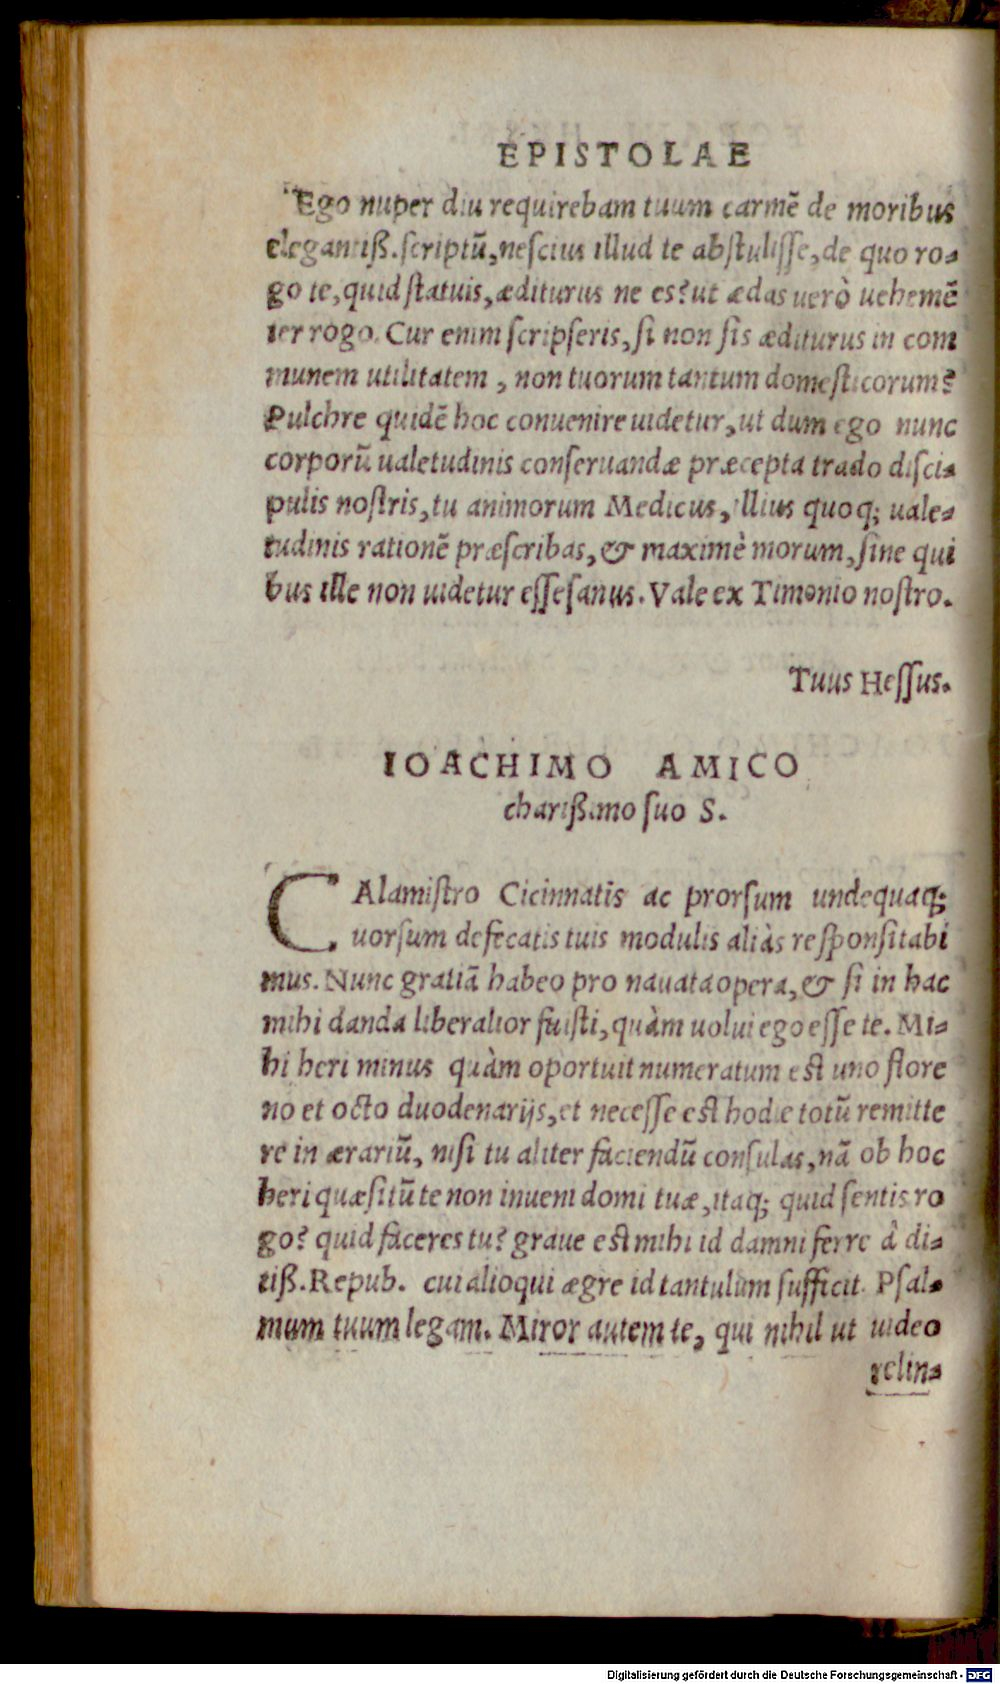 EPISTOLAE
Ego nuper diu requirebam tuum carmē de moribus
elegantiß. scriptū, nescius illud te abstulisse, de quo ro-
go te, quid statuis, æditurus ne es? ut ædas uerò uehemē
ter rogo. Cur enim scripseris, si non sis æditurus in com
munem utilitatem, non tuorum tantum domesticorum?
Pulchre quidē hoc conuenire uidetur, ut dum ego nunc
corporū ualetudinis conseruandæ præcepta trado disci-
pulis nostris, tu animorum Medicus, illius quoq; uale-
tudinis rationē præscribas, & maximè morum, sine qui
bus ille non uidetur esse sanus. Vale ex Timonio nostro.
Tuus Hessus.
IOACHIMO AMICO
charißimo suo S.
CAlamistro Cicinnatis ac prorsum undequaq;
uorsum defecatis tuis modulis aliàs responsitabi
mus. Nunc gratiā habeo pro nauata opera, & si in hac
mihi danda liberalior fuisti, quàm uolui ego esse te. Mi-
hi heri minus quàm oportuit numeratum est uno flore
no et octo duodenarijs, et necesse est hodie totū remitte
re in ærariū, nisi tu aliter faciendū consulas, nā ob hoc
heri quæsitū te non inueni domi tuæ, itaq; quid sentis ro
go? quid faceres tu? graue est mihi id damni ferre à di-
tiß. Repub. cui alioqui ægre id tantulum sufficit. Psal-
mum tuum legam. Miror autem te, qui nihil ut uideo
relin-
Digitalisierung gefördert durch die Deutsche Forschungsgemeinschaft - DFG